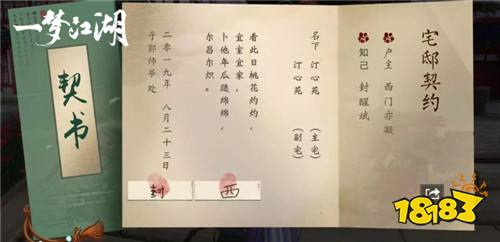 一梦江湖
契书
宅邸契约
户主 西门亦凝
知己 封醒斌
名下 汀心苑 (主宅)
汀心苑 (副宅)
看此日桃花灼灼,
宜室宜家,
卜他年瓜瓞绵绵,
尔昌尔炽。
二零一九年 八月二十三日
于郭师爷处
封
西
18183